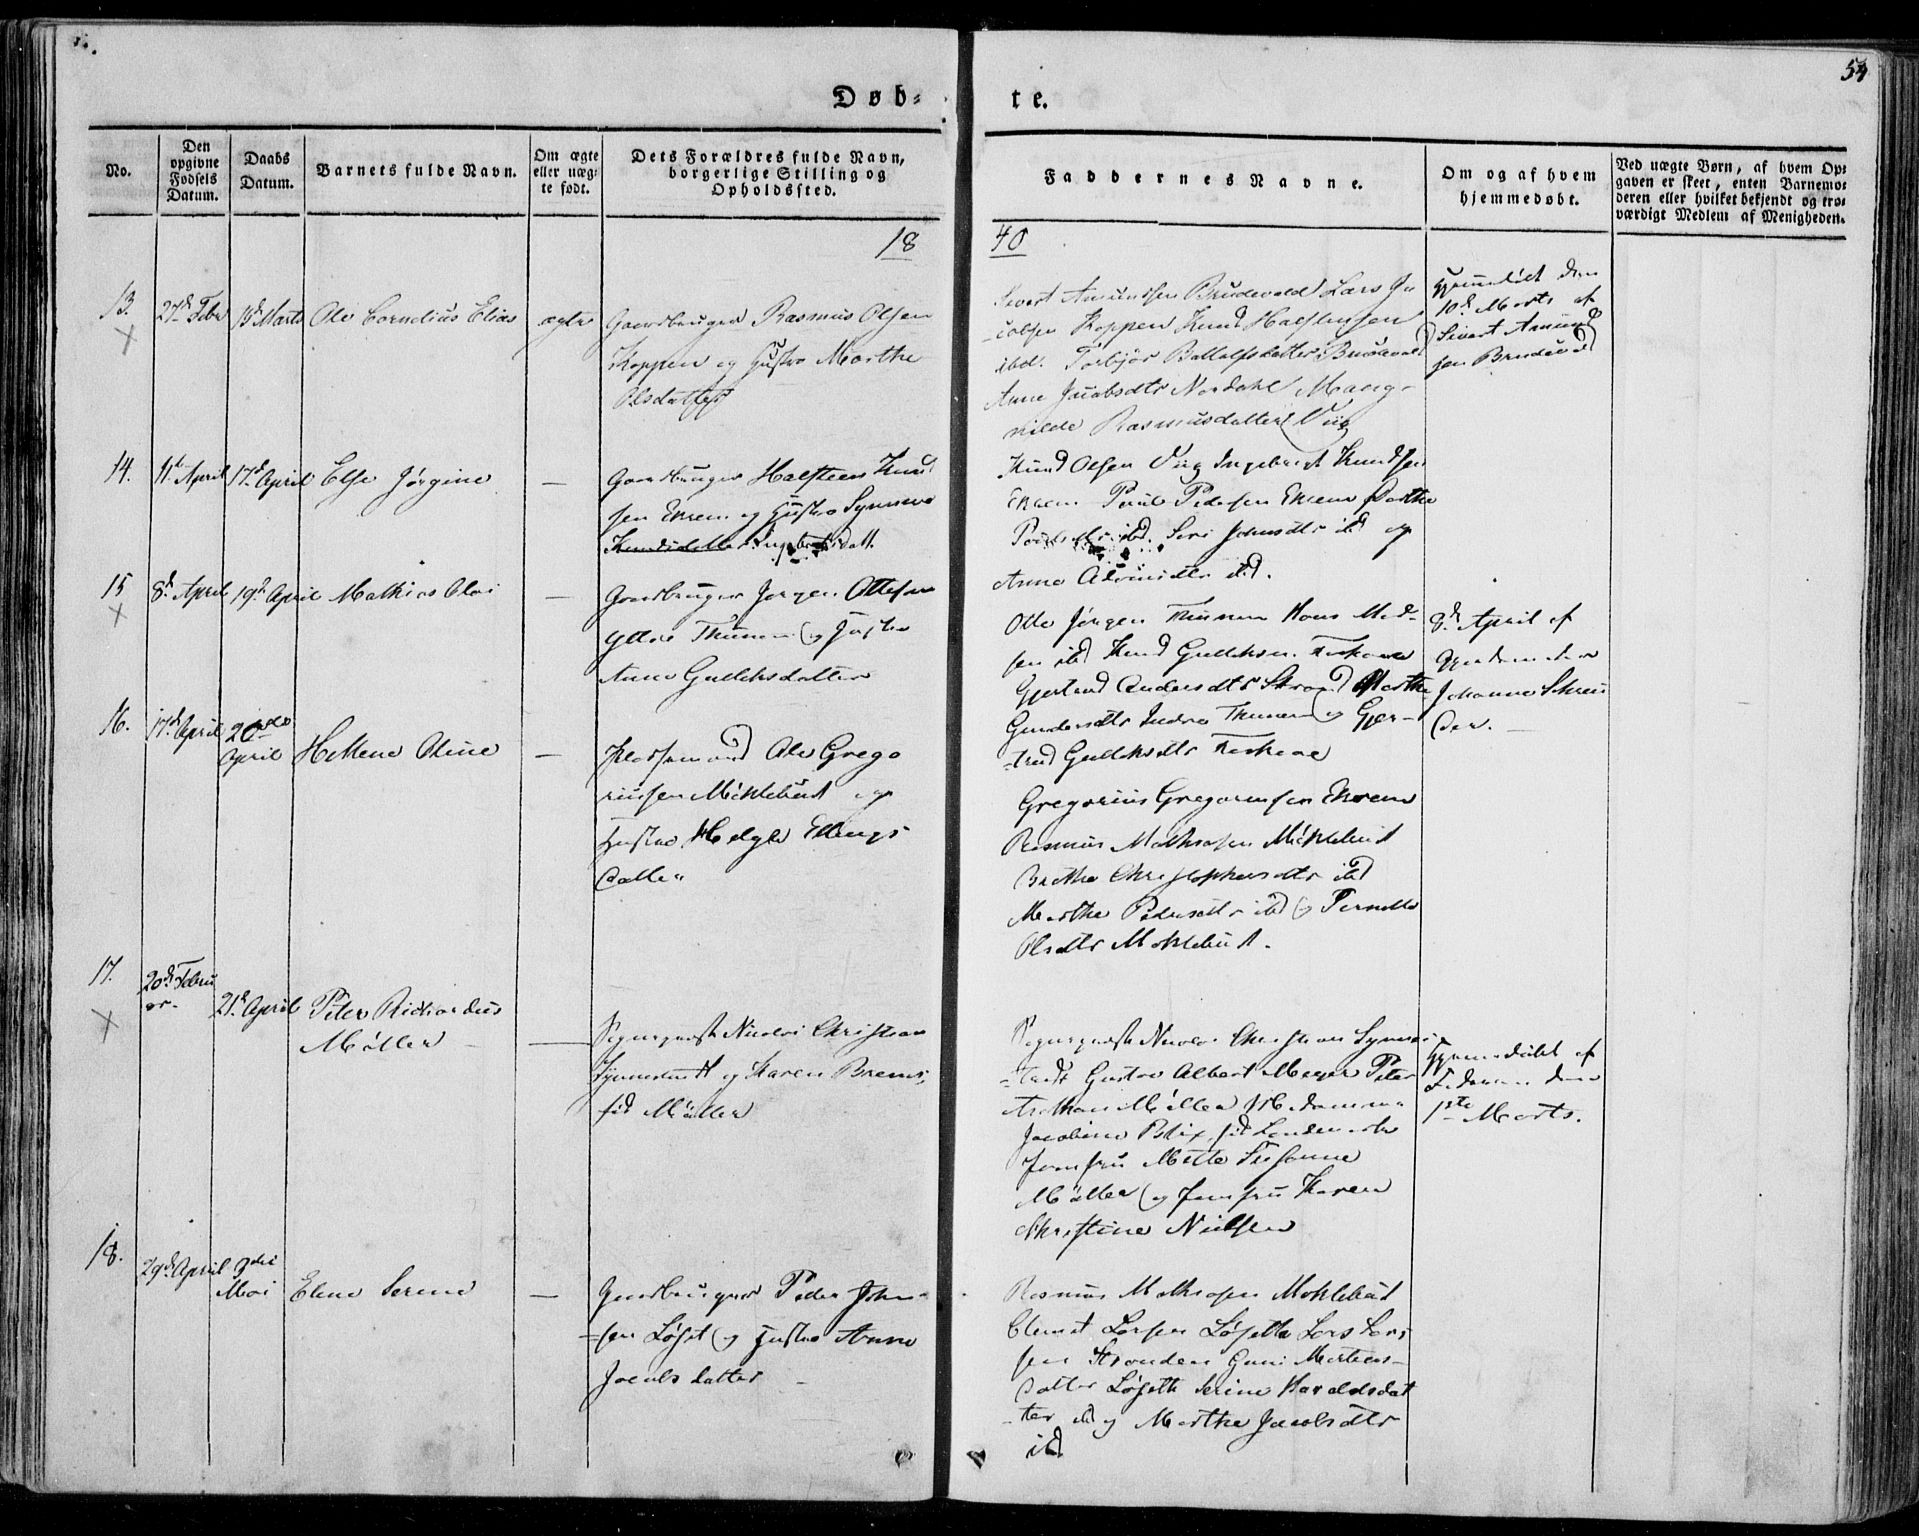 54
Døb-
te.
No.
Den
opgivne
Fødsels
Datum.
Daabs
Datum.
Barnets fulde Navn.
Om ægte
eller uæg-
te født.
Dets Forældres fulde Navn,
borgerlige Stilling og
Opholdssted.
Faddernes Navne.
Om og af hvem
hjemmedøbt.
Ved uægte Børn, af hvem Op-
gaven er skeet, enten Barnemo-
deren eller hvilket bekjendt og tro-
værdigt Medlem af Menigheden.
18
40
13.
27d Febr
15d Marts
Ole Cornelius Elias
ægte
Gaardbruger Rasmus Olsen
Koppen og Hustro Marthe
Olsdatter
Sivert Amundsen Brudevold Lars Ja
cobsen Koppen Knud Halstensen
ibd. Torbjør Brudevold
Anne Jacobsdtr Nordahl Mang-
nilde Rasmusdatter Viig
Hjemmedøbt den
10d Marts af
Sivert Amund
sen Brudevold
14.
11te April
17d April
Else Jørgine
—
Gaardbruger Halsteen Knud
sen Ekrem og Hustro Synneve
Knudsdatter
Knud Olsen Viig Ingebrigt Knudsen
Ekrem Poul Pedersen Ekrem Marthe
ibd. Siri Johnsdtr ibd og
Anne ibd.
15
8d April
19d April
Mathias Oloi
—
Gaardbruger Jørgen Ottesen
Yttre Thunem og Hustro
Anne Gulliksdatter
Otto Jørgen Thunem Hans Mad-
sen ibd Knud Gulliksen
Gjertrud Andersdtr Strand Marthe
Gundersdtr Indre Thunem og Gjer-
trud Gulliksdtr
8d April af
Gjordemoder
Johanna Schrø
der. —
16.
17d April
20de
April
Hellene Oline
—
Pladsemand Ole Grego
riusen Möklebust og
Hustro Helgle Ellings
datter
Gregorius Gregoriusen Ekrem
Rasmus Mathiasen Möklebust
Birthe Christophersdtr ibd
Marthe Pedersdtr ibd og Pernelle
Olsdtr Moklebust.
17.
20d Febru
ar.
21d April
Peter Richardus
Møller
—
Nicolai Christian
Synnestvedt og Karen Brems,
fød Møller
Nicolai Christian Synnes
tvedt Gustav Albert Meyer Peter
Møller Madamme
Jacobine Blix, fød
Jomfru Mette Susanne
Møller og Jomfru Karen
Christine Nielsen
Hjemmedøbt af
Faderen den
1ste Marts.
18.
29d April
9de
Mai
Elene Serine
—
Gaardbruger Peder John-
sen Løset og Hustro Anne
Jacobsdatter —
Rasmus Mathiasen Moklebust
Clemet Larsen Løseth Lars Lar
sen Stranden Guni Martins-
datter Løseth Serine Haraldsdat
ter ibd og Marthe Jacobsdtr
ibd